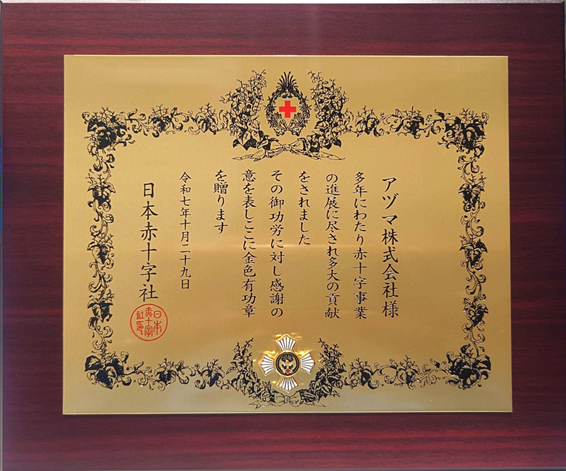 アヅマ株式会社様
多年にわたり赤十字事業
の進展に尽され多大の貢献
をされました
その御功労に対し感謝の
意を表しここに金色有功章
を贈ります
令和七年十月二十九日
日本赤十字社